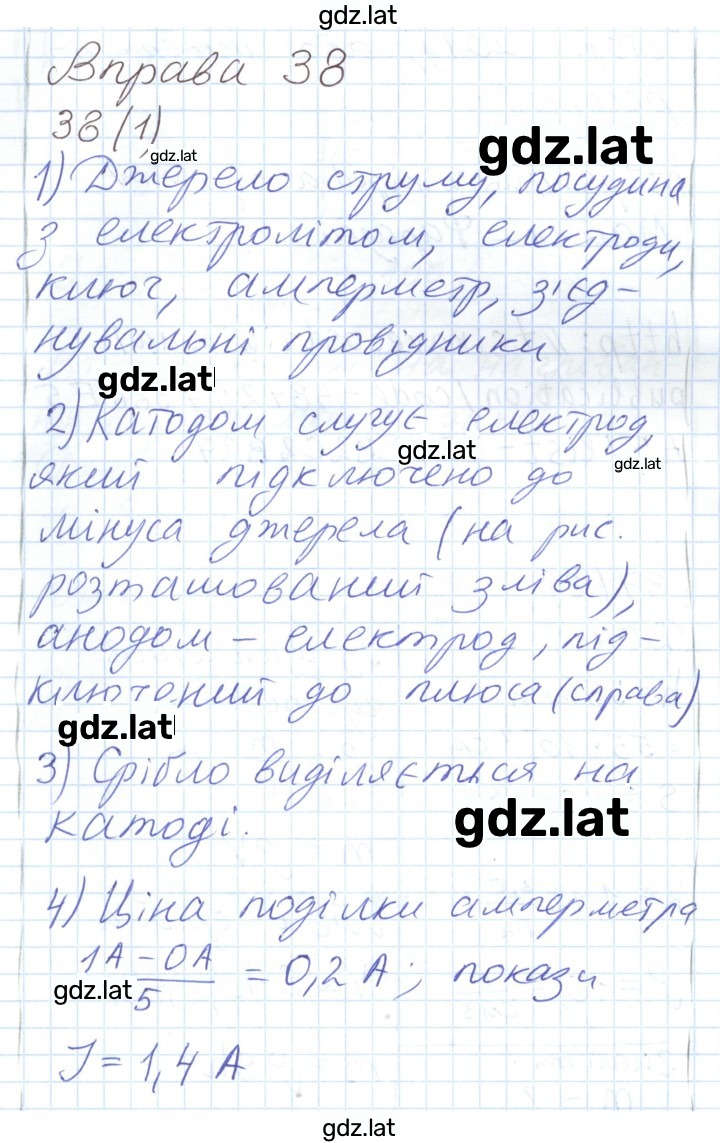 gdz.lat
Вправа 38
38(1)
gdz.lat
gdz.lat
1) Джерело струму, посудина
з електролітом, електроди,
ключ, амперметр, з'єд-
нувальні провідники
gdz.lat
2) Катодом слугує електрод,
gdz.lat
gdz.lat
який підключено до
мінуса джерела (на рис.
розташований зліва),
анодом – електрод, під-
ключоний до плюса (справа)
gdz.lat
3) Срібло виділяється на
катоді.
gdz.lat
4) Ціна поділки амперметра
1А – 0А / 5 = 0,2 А; покази
gdz.lat
I = 1,4 А
gdz.lat